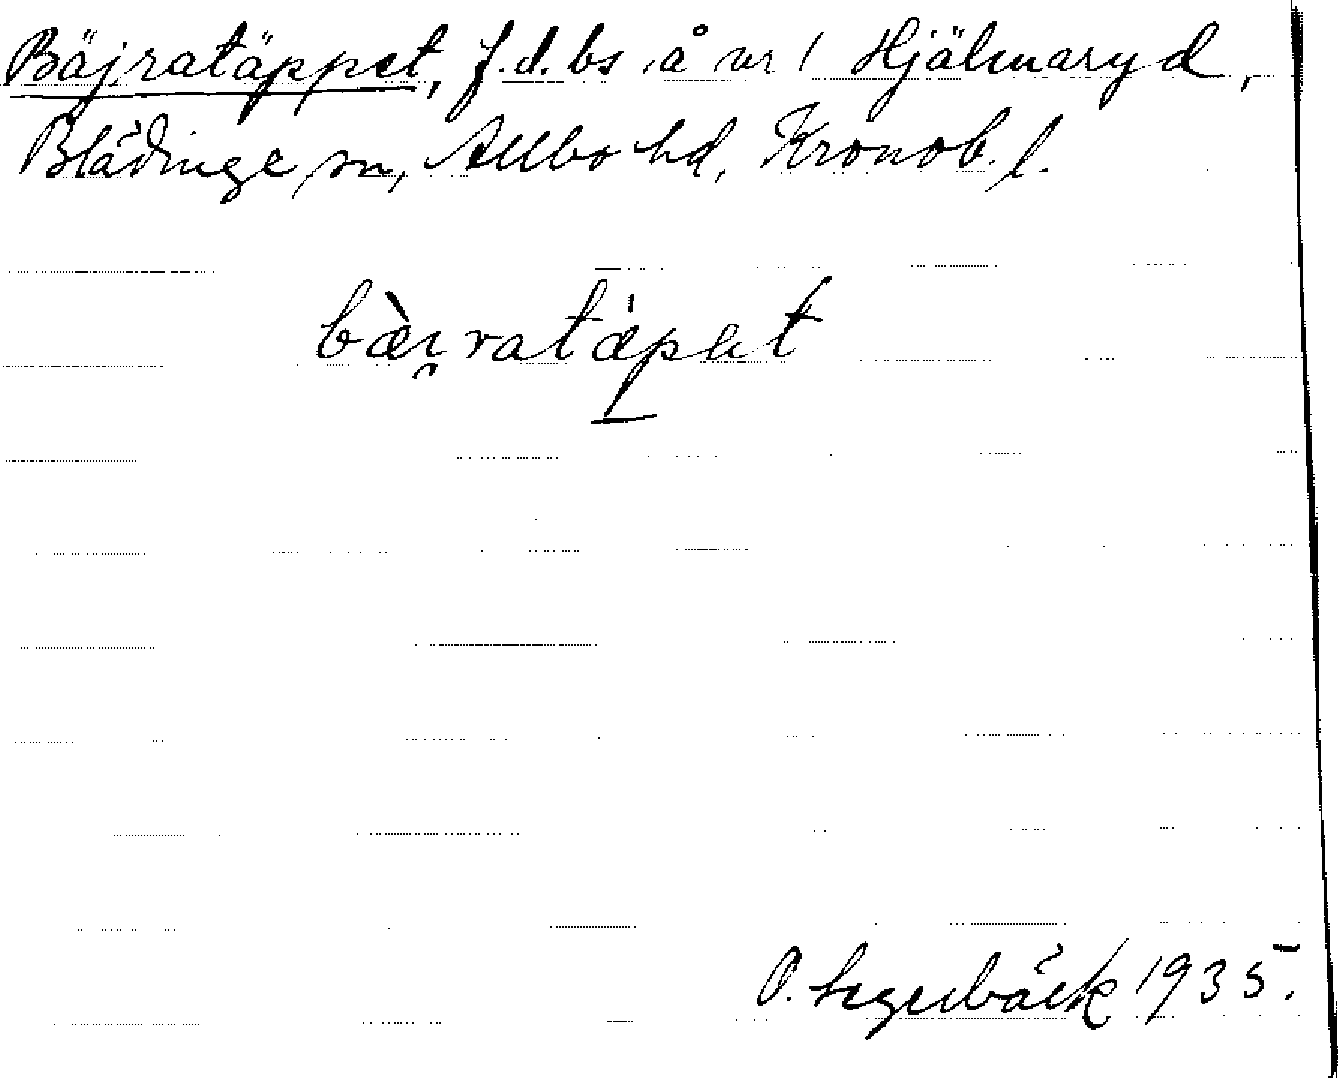 Bäjratäppet, f.d. bs å nr 1 Hjälmaryd,
Blädinge sn, Allbo hd, Kronob. l.
bæ̀i̯ratæpət
O. Legerbäck 1935.